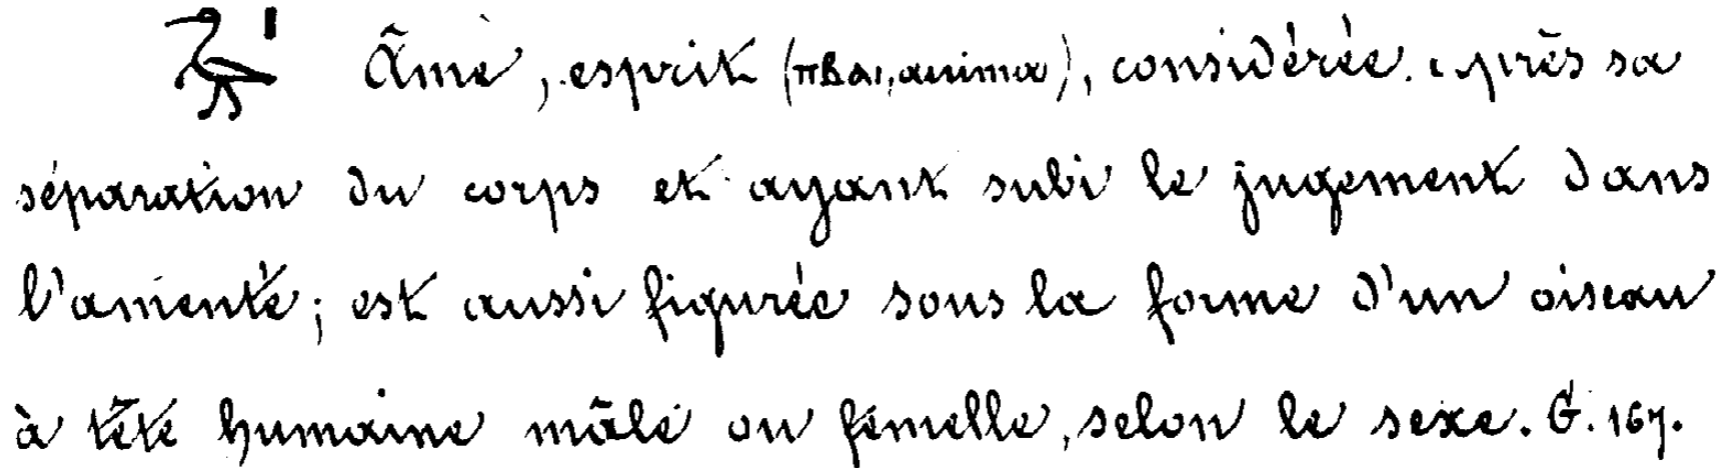 Âme, esprit (ⲡⲃⲁⲓ, anima), considérée après sa
séparation du corps et ayant subi le jugement dans
l'amenté; est aussi figurée sous la forme d'un oiseau
à tête humaine mâle ou femelle, selon le sexe. G. 167.